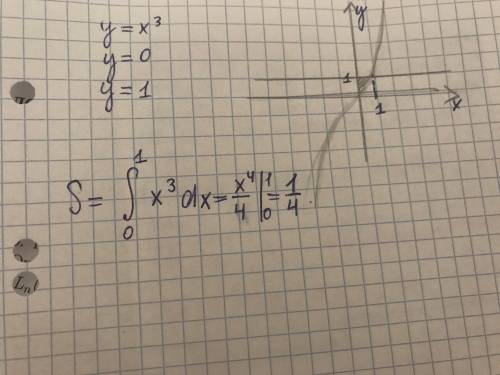 y = x³
y = 0
y = 1
y
1
1
x
S = ∫₀¹ x³ dx = x⁴/4 |₀¹ = 1/4
Ln(